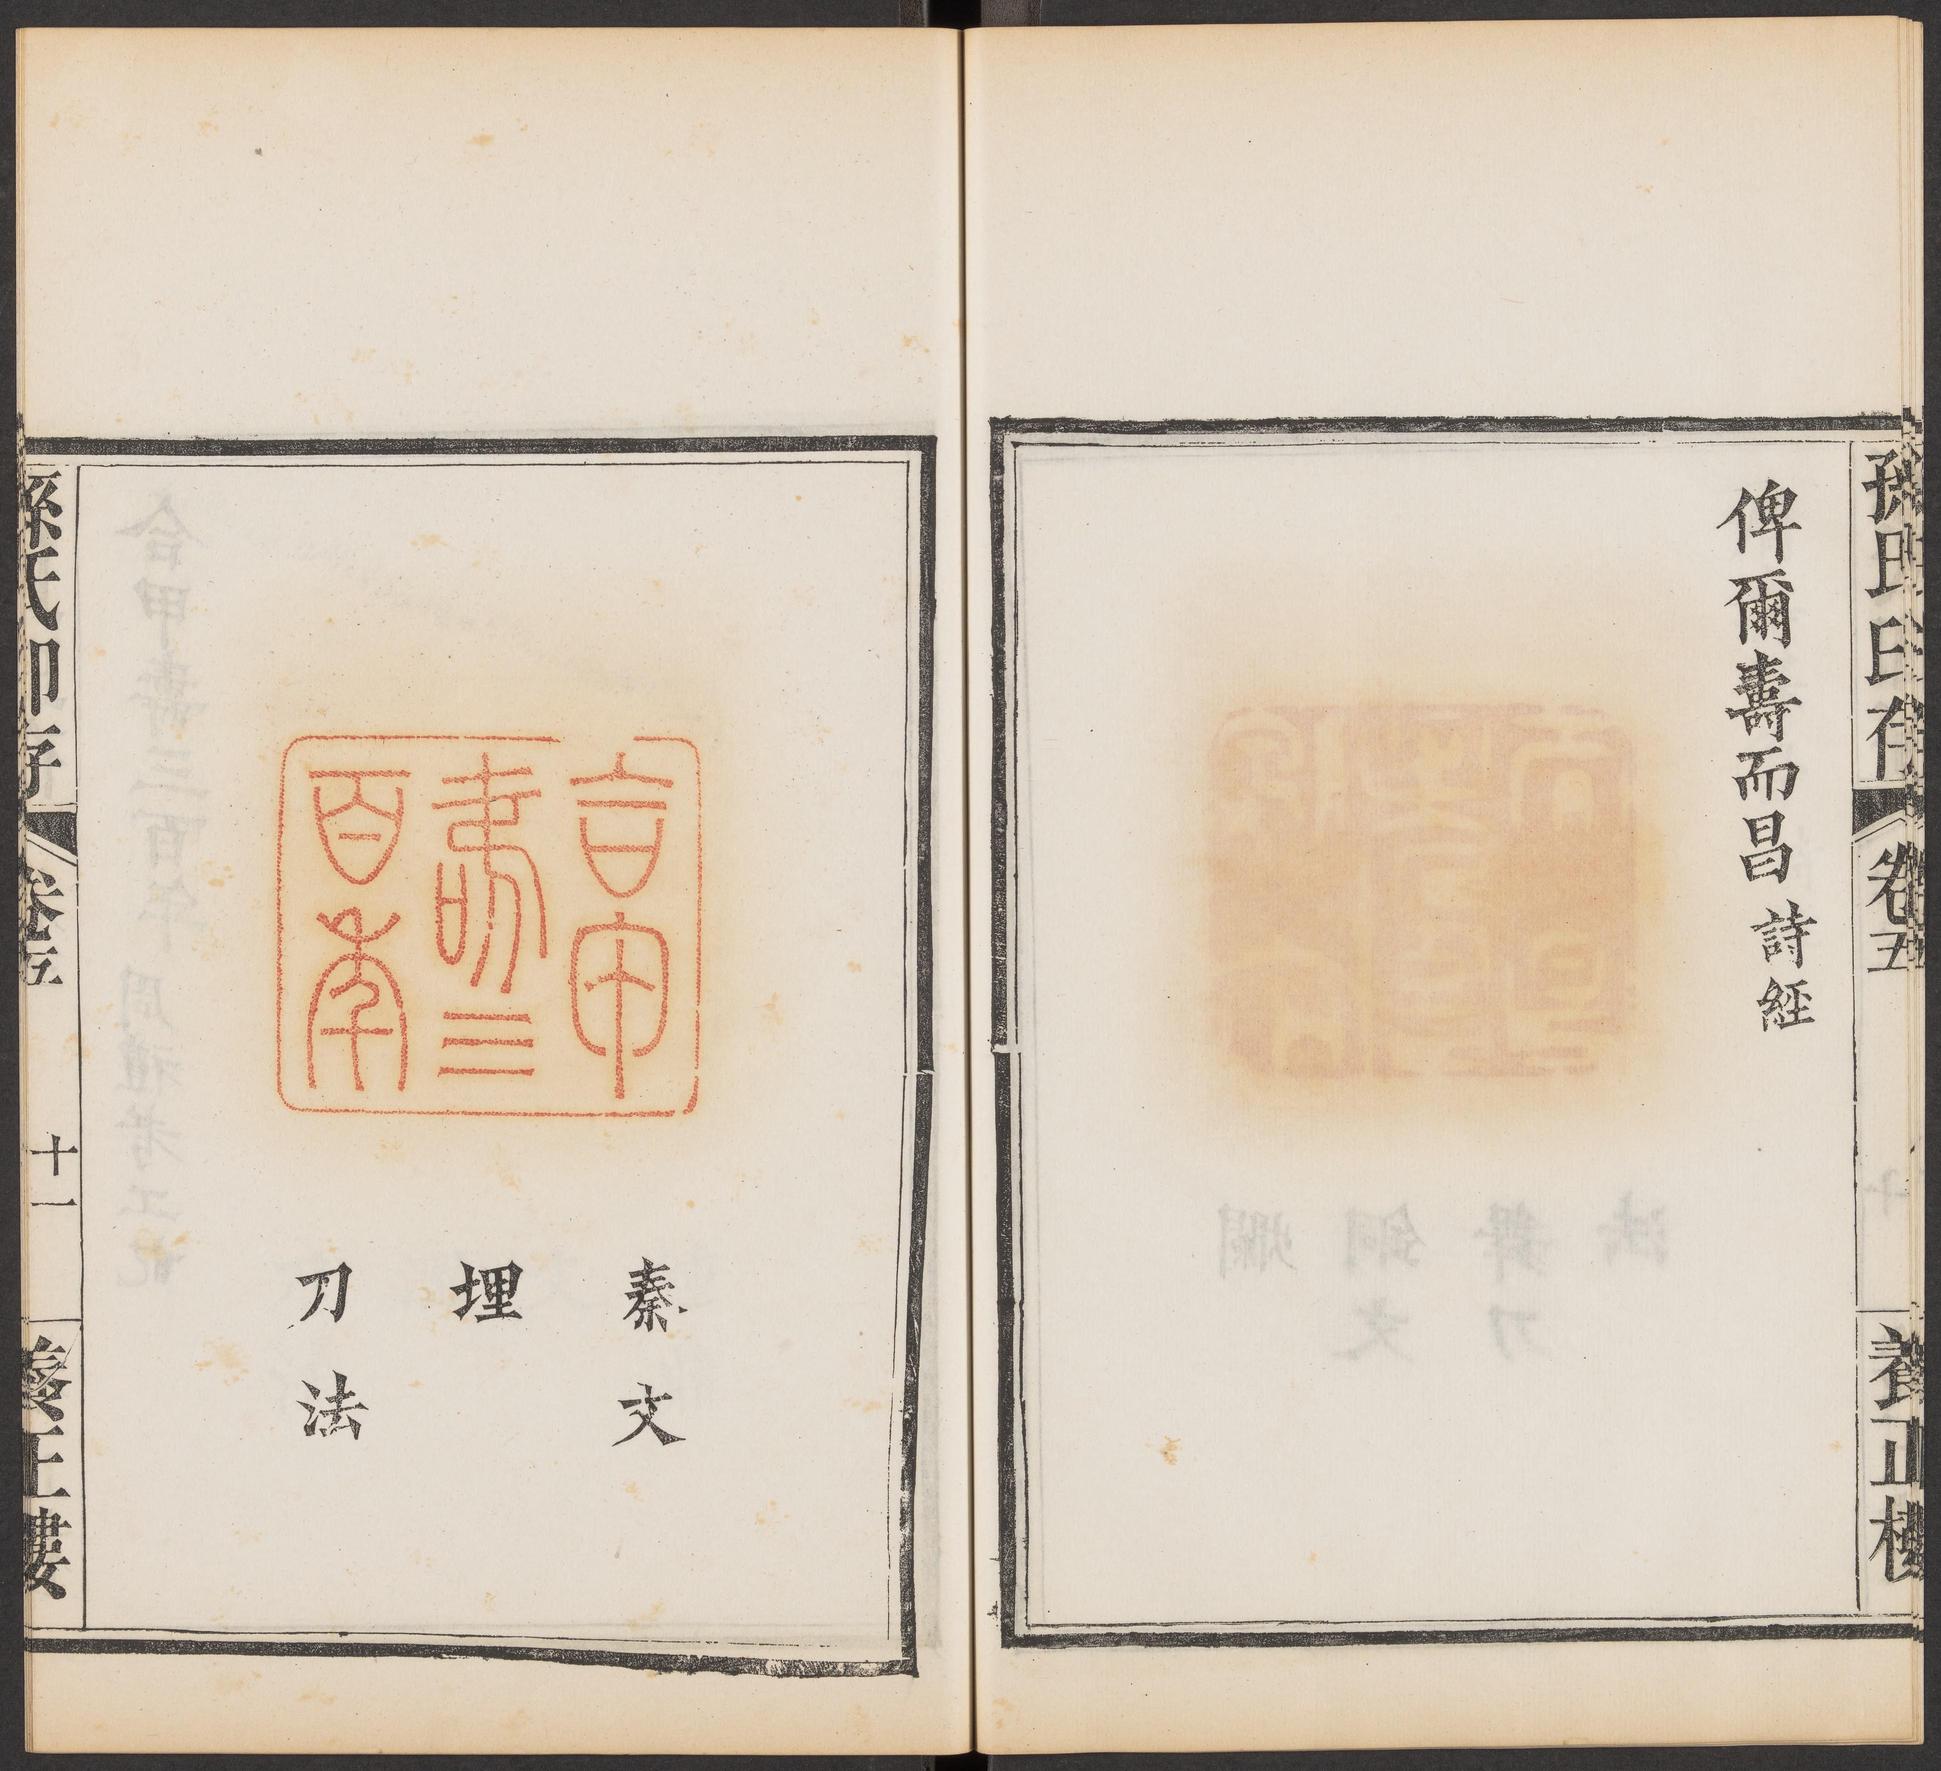 孫氏印存 卷五 養正樓
俾爾壽而昌 詩經
合甲
壽三
百年
秦文
埋
刀法
孫氏印存 卷五 十一 養正樓